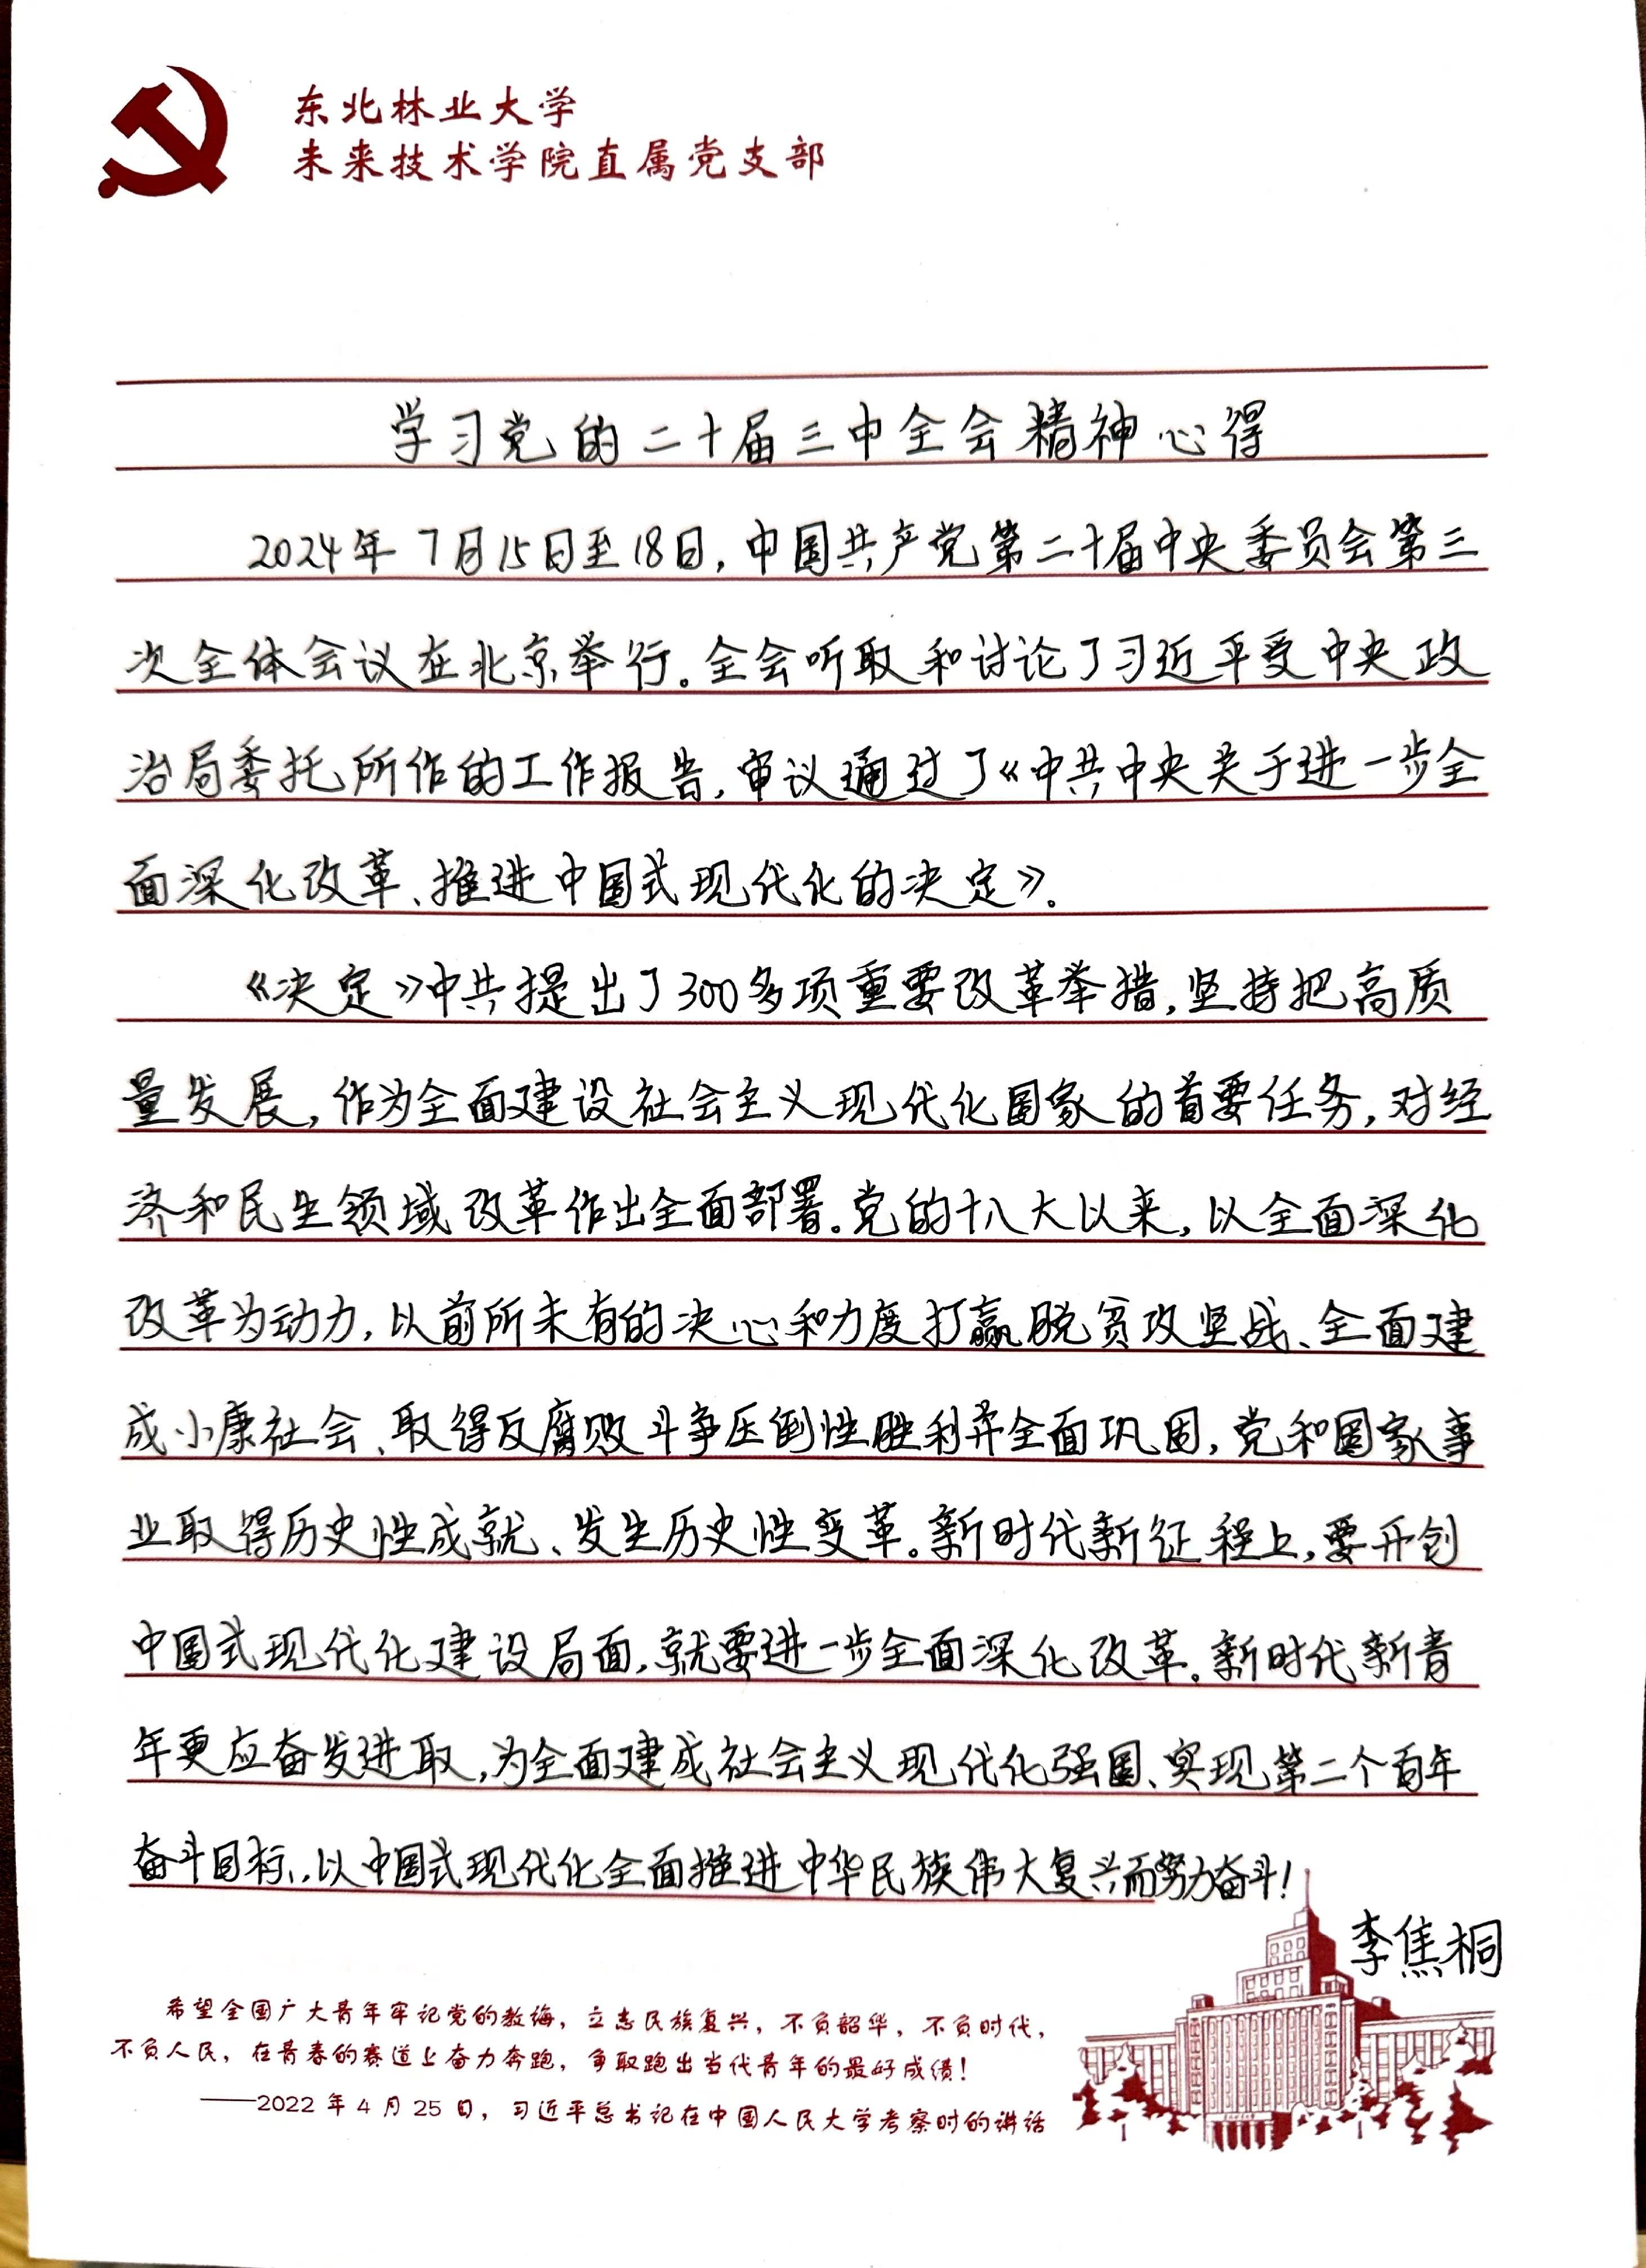 东北林业大学
未来技术学院直属党支部
学习党的二十届三中全会精神心得
2024年7月15日至18日，中国共产党第二十届中央委员会第三
次全体会议在北京举行。全会听取和讨论了习近平受中央政
治局委托所作的工作报告，审议通过了《中共中央关于进一步全
面深化改革、推进中国式现代化的决定》。
《决定》中共提出了300多项重要改革举措，坚持把高质
量发展，作为全面建设社会主义现代化国家的首要任务，对经
济和民生领域改革作出全面部署。党的十八大以来，以全面深化
改革为动力，以前所未有的决心和力度打赢脱贫攻坚战、全面建
成小康社会、取得反腐败斗争压倒性胜利并全面巩固，党和国家事
业取得历史性成就、发生历史性变革。新时代新征程上，要开创
中国式现代化建设局面，就要进一步全面深化改革。新时代新青
年更应奋发进取，为全面建成社会主义现代化强国、实现第二个百年
奋斗目标、以中国式现代化全面推进中华民族伟大复兴而努力奋斗！
李焦桐
希望全国广大青年牢记党的教诲，立志民族复兴，不负韶华，不负时代，
不负人民，在青春的赛道上奋力奔跑，争取跑出当代青年的最好成绩！
——2022年4月25日，习近平总书记在中国人民大学考察时的讲话